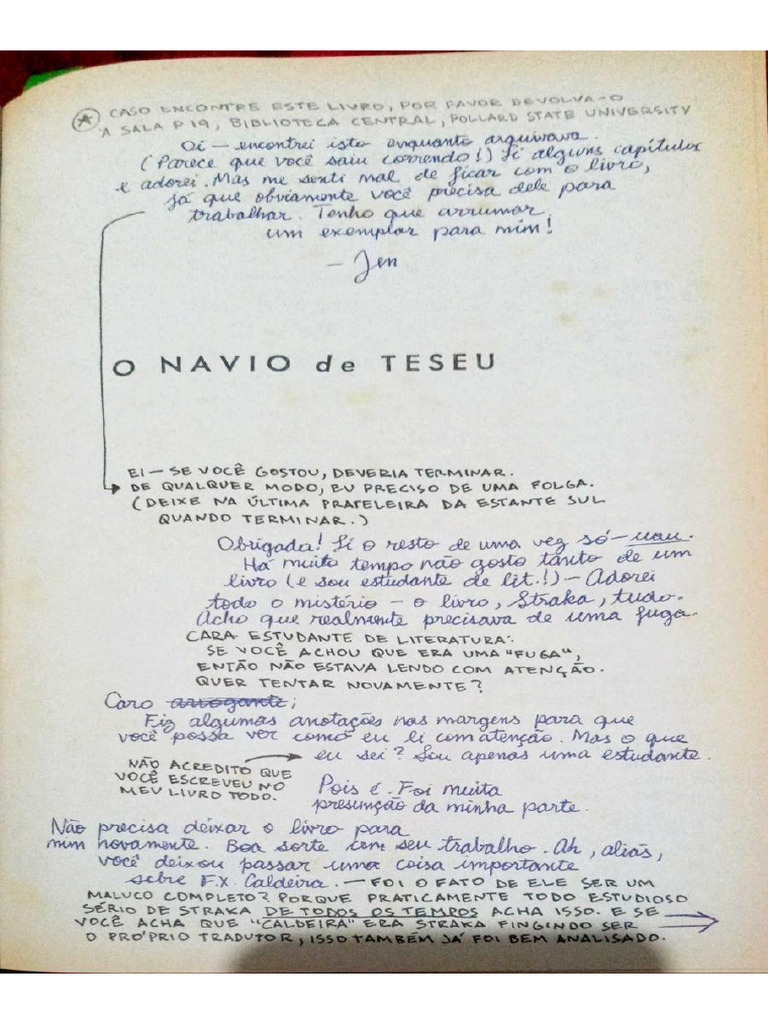 * CASO ENCONTRE ESTE LIVRO, POR FAVOR DEVOLVA-O
À SALA P19, BIBLIOTECA CENTRAL, POLLARD STATE UNIVERSITY
Oi — encontrei isto enquanto arquivava.
(Parece que você saiu correndo!) Li alguns capítulos
e adorei. Mas me senti mal de ficar com o livro,
já que obviamente você precisa dele para
trabalhar. Tenho que arrumar
um exemplar para mim!
— Jen
O NAVIO de TESEU
EI — SE VOCÊ GOSTOU, DEVERIA TERMINAR.
DE QUALQUER MODO, EU PRECISO DE UMA FOLGA.
(DEIXE NA ÚLTIMA PRATELEIRA DA ESTANTE SUL
QUANDO TERMINAR.)
Obrigada! Li o resto de uma vez só — uau.
Há muito tempo não gosto tanto de um
livro (e sou estudante de lit.!) — Adorei
todo o mistério — o livro, Straka, tudo.
Acho que realmente precisava de uma fuga.
CARA ESTUDANTE DE LITERATURA:
SE VOCÊ ACHOU QUE ERA UMA "FUGA",
ENTÃO NÃO ESTAVA LENDO COM ATENÇÃO.
QUER TENTAR NOVAMENTE?
Caro arrogante;
Fiz algumas anotações nas margens para que
você possa ver como eu li com atenção. Mas o que
eu sei? Sou apenas uma estudante.
NÃO ACREDITO QUE
VOCÊ ESCREVEU NO
MEU LIVRO TODO.
Pois é. Foi muita
presunção da minha parte.
Não precisa deixar o livro para
mim novamente. Boa sorte com seu trabalho. Ah, aliás,
você deixou passar uma coisa importante
sobre F.X. Caldeira. — FOI O FATO DE ELE SER UM
MALUCO COMPLETO? PORQUE PRATICAMENTE TODO ESTUDIOSO
SÉRIO DE STRAKA DE TODOS OS TEMPOS ACHA ISSO. E SE
VOCÊ ACHA QUE "CALDEIRA" ERA STRAKA FINGINDO SER
O PRÓPRIO TRADUTOR, ISSO TAMBÉM JÁ FOI BEM ANALISADO.